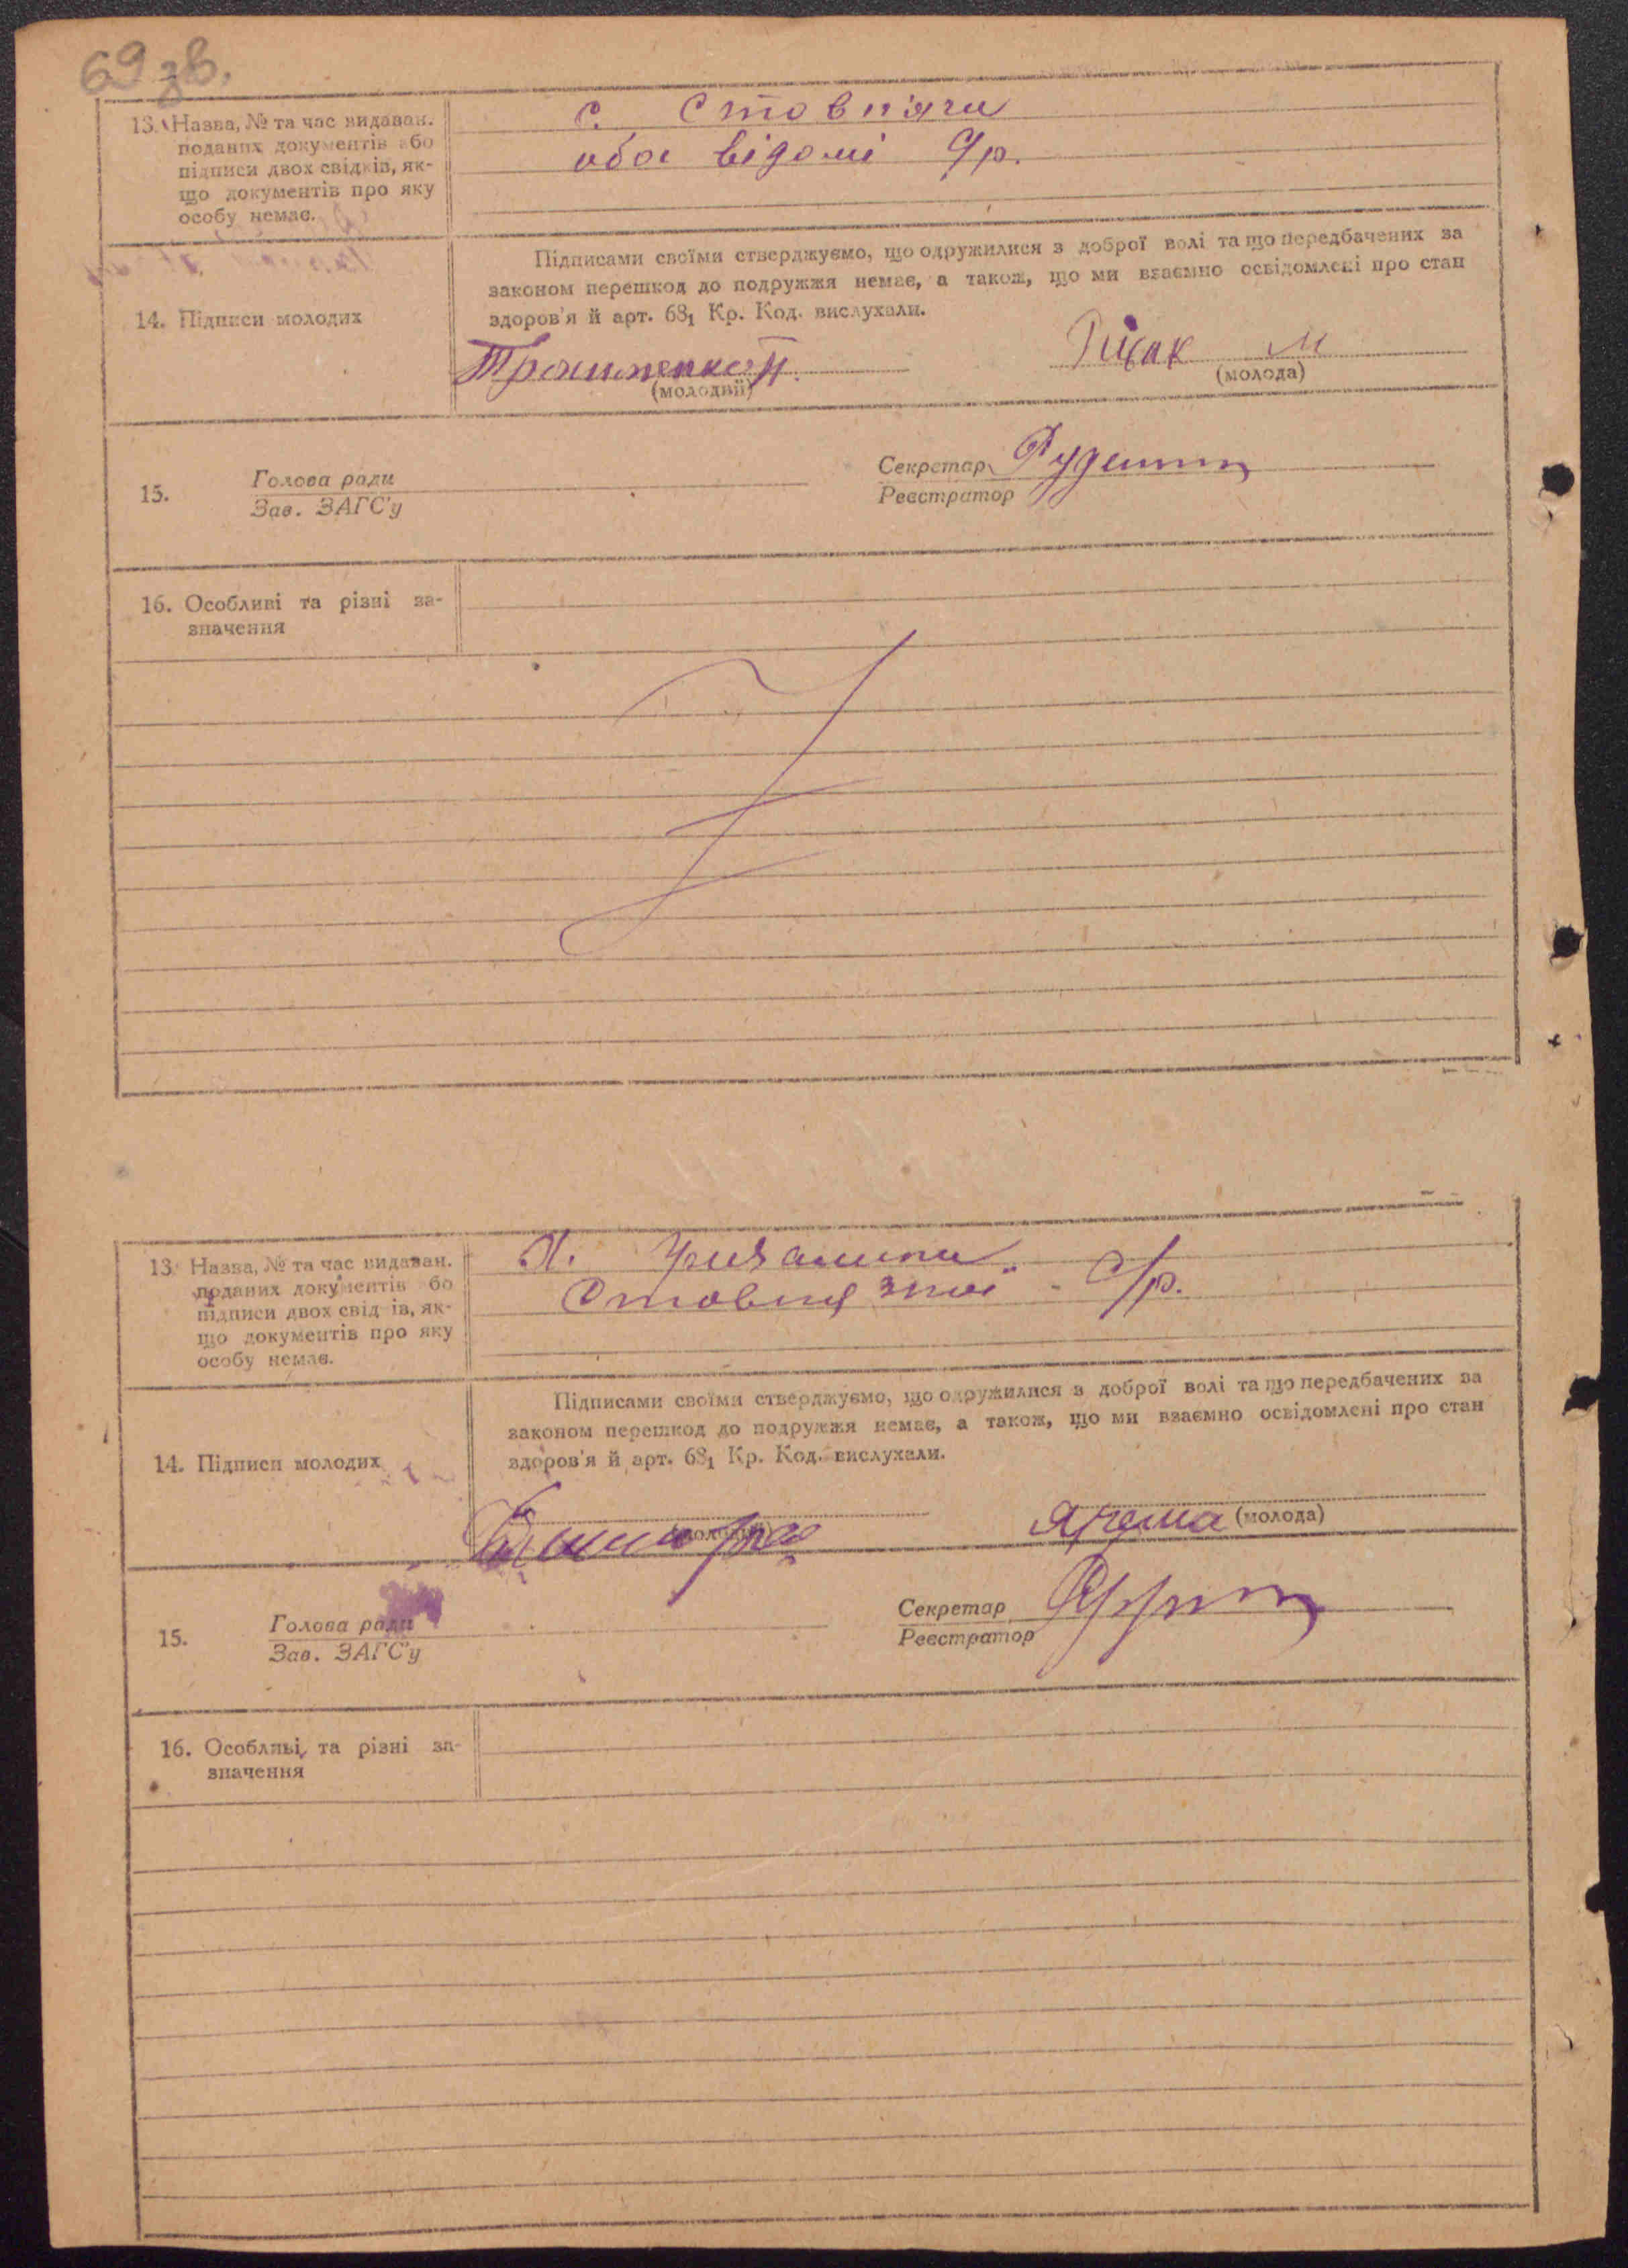 69 зв.
13. Назва, № та час видаван.
поданих документів або
підписи двох свідків, як-
що документів про яку
особу немає.
с. Стовп'яги
оба відомі с/р.
14. Підписи молодих
Підписами своїми стверджуємо, що одружилися з доброї волі та що передбачених за
законом перешкод до подружжя немає, а також, що ми взаємно освідомлені про стан
здоров'я й арт. 68₁ Кр. Код. вислухали.
(молодий)
М
(молода)
15.
Голова ради
Зав. ЗАГС'у
Секретар
Реєстратор
16. Особливі та різні за-
значення
13. Назва, № та час видаван.
поданих документів або
підписи двох свідків, як-
що документів про яку
особу немає.
с/р.
14. Підписи молодих
Підписами своїми стверджуємо, що одружилися з доброї волі та що передбачених за
законом перешкод до подружжя немає, а також, що ми взаємно освідомлені про стан
здоров'я й арт. 68₁ Кр. Код. вислухали.
(молодий)
Ярема (молода)
15.
Голова ради
Зав. ЗАГС'у
Секретар
Реєстратор
16. Особливі та різні за-
значення